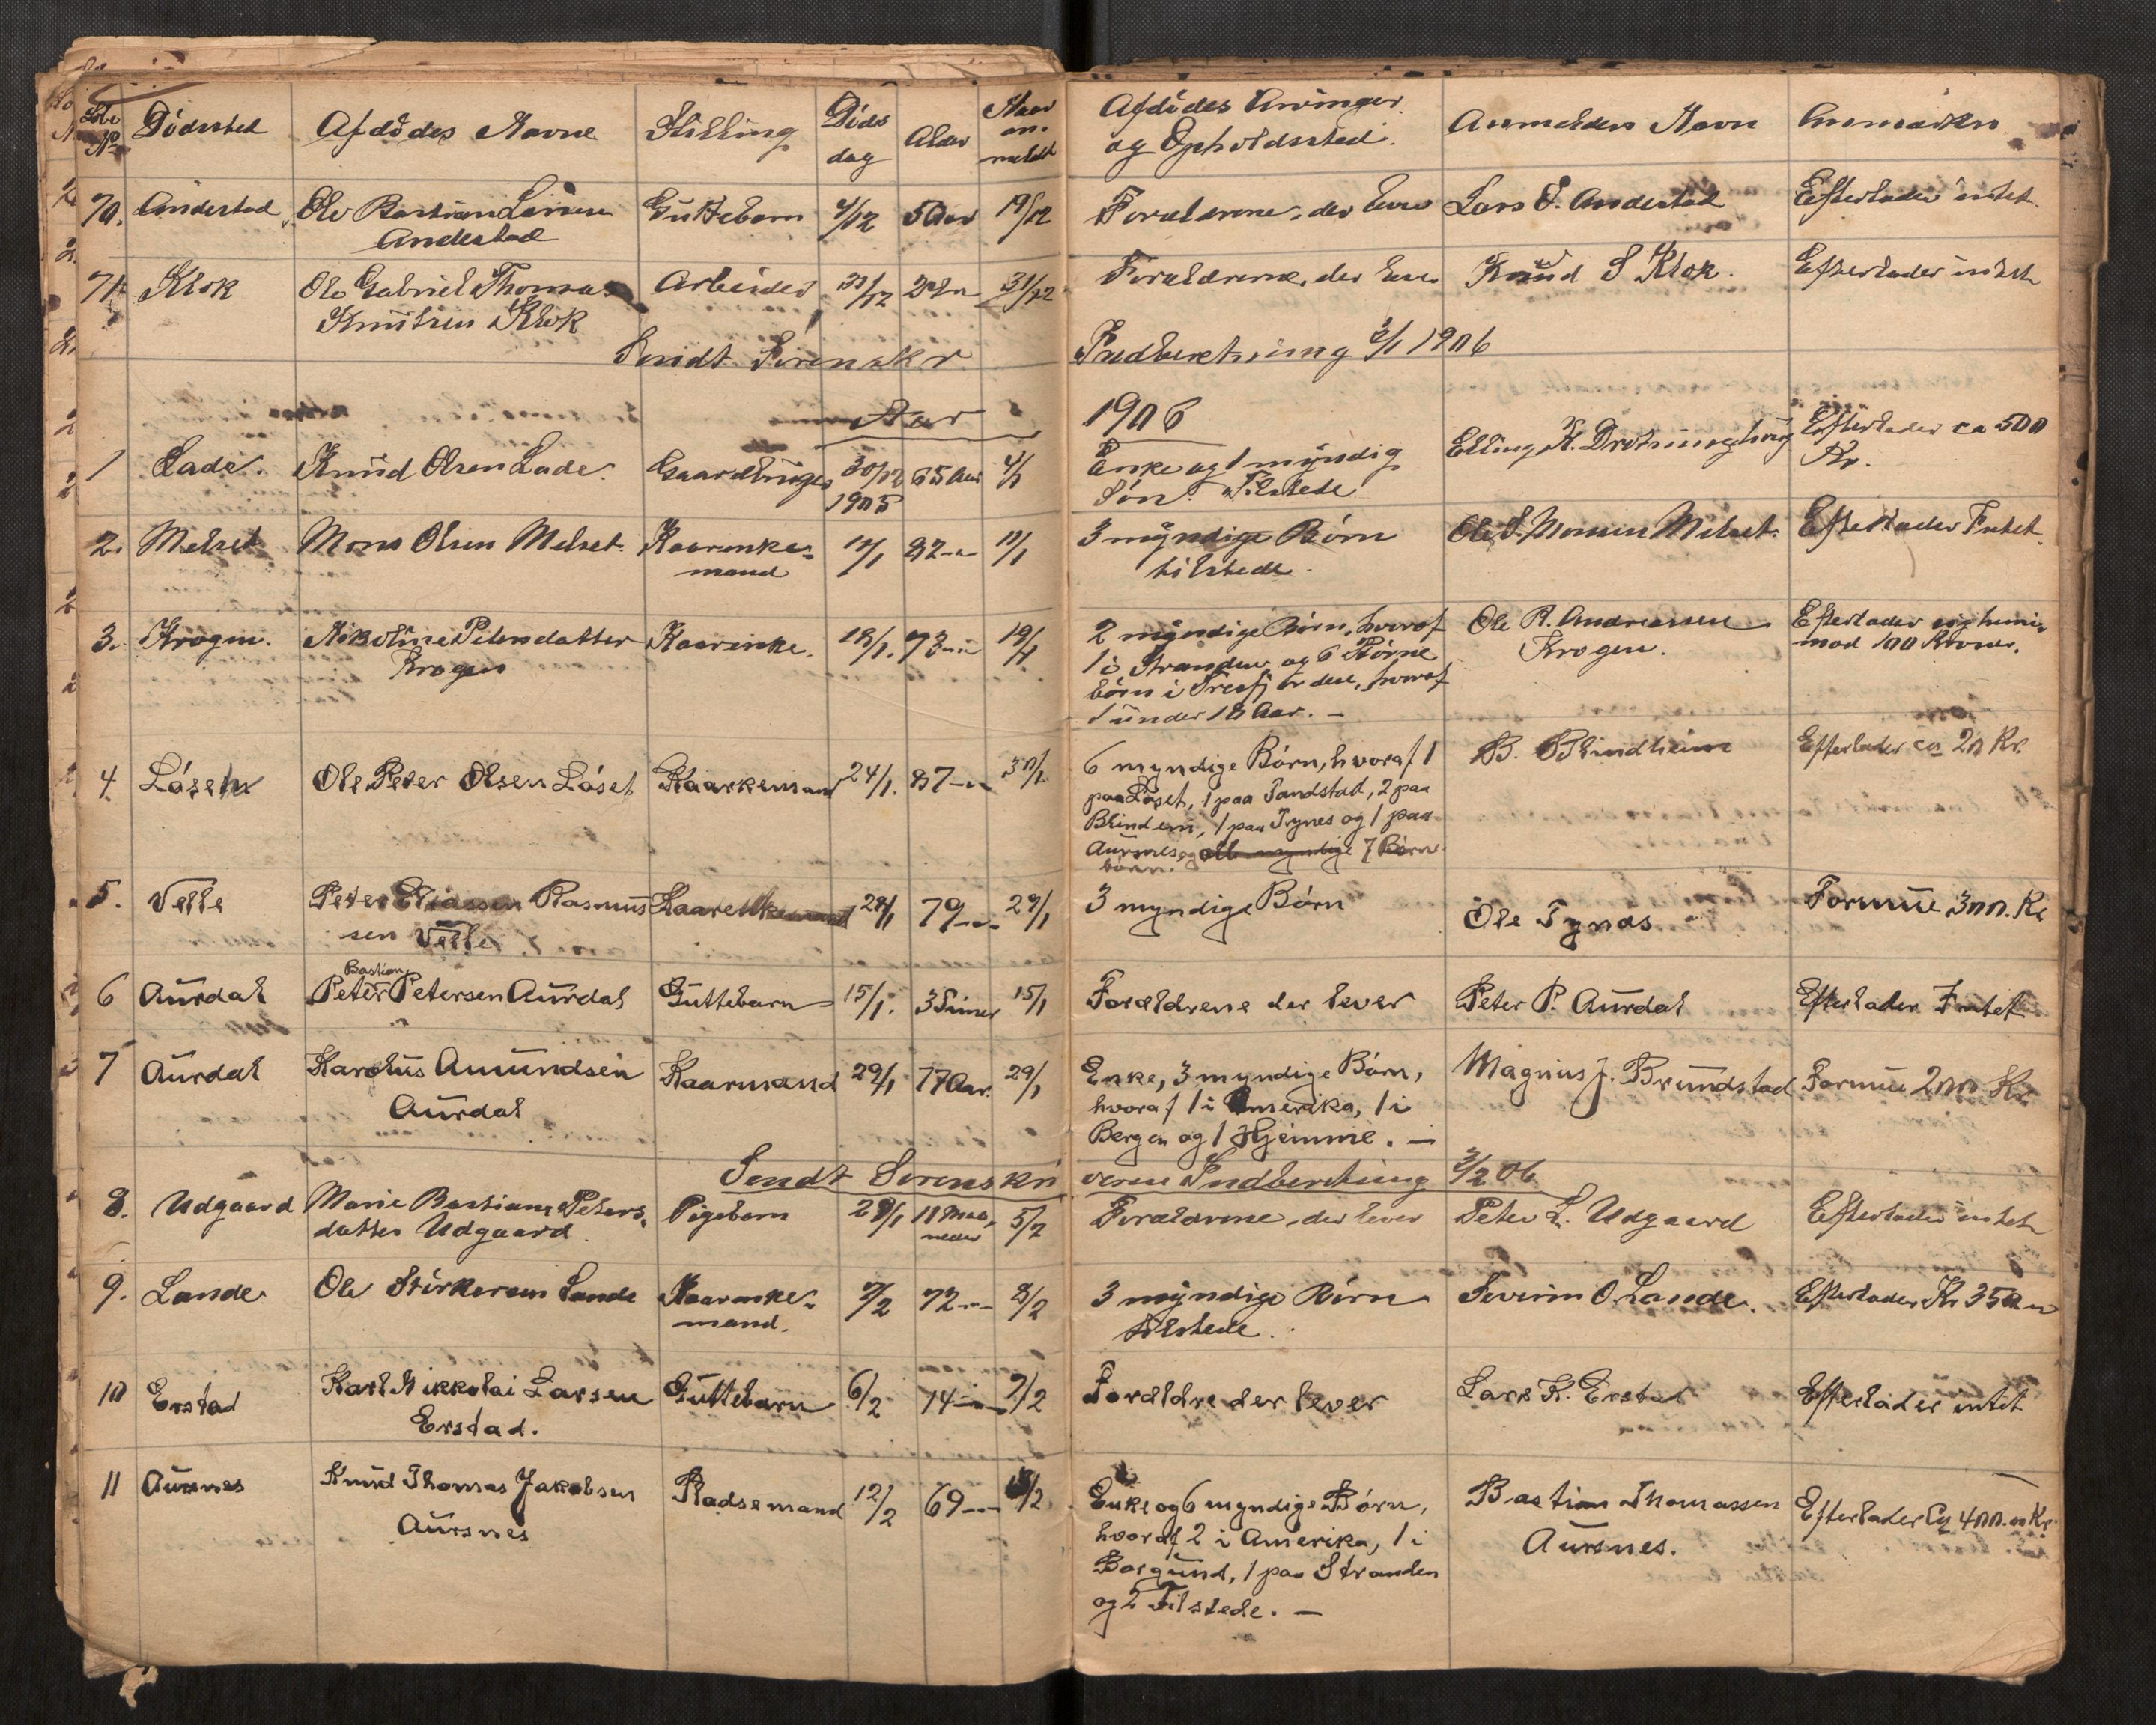 Løbe No Dødssted Afdødes Navne Stilling Døds dag Alder Naar an- meldt Afdødes Arvinger og Opholdssted. Anmelders Navn Anmærkn
70. Andestad Ole Bastian Larsen Guttebarn 4/12 5 Aar 19/12 Forældrene, der lever Lars O. Andestad Efterlader intet.
Andestad
71. Klok Ole Gabriel Thomas Arbeider 31/12 31/12 Forældrene, der lever Knud S Klok. Efterlader intet
Knutsen Klok
Sendt Sorenskr Indberetning 2/1 1906
Aar 1906
1 Lade. Knud Olsen Lade. Gaardbruger 30/12 65 Aar 4/1 Enke og 1 myndig Elling K. Efterlader ca 500
1905 Søn. Tilstede Kr.
2. Melset Mons Olsen Melset Kaarenke- 10/1 82 - " 11/1 3 myndige Børn Ole S. Monsen Melset. Efterlader Intet.
mand tilstede.
3. Krogen. Nikoline Petersdatter Kaarenke. 18/1. 73 - " 19/1 2 myndige Børn, hvoraf Ole R. Andreassen Efterlader
Krogen 1 i Stranden og 6 Børne Krogen. mod 100 Kroner.
børn i Tresfjorden, hvoraf
1 under 18 Aar. -
4. Løset Ole Peter Olsen Løset Kaarkemand 24/1. 87 - " 30/1. 6 myndige Børn, hvoraf 1 B. Blindheim Efterlader ca 20 Kr.
paa Løset, 1 paa Sandstad, 2 paa
Blindem, 1 paa Tynes og 1 paa
Aursnes, og alle myndige 7 Børne
børn.
5. Velle Peter Eliassen Rasmus Kaarenkemand 28/1 79 - " - 29/1 3 myndige Børn Ole Tynes Formue 300. Kr
sen Velle
Bastian
6 Aurdal Peter Petersen Aurdal Guttebarn 15/1. 3 Timer 15/1 Forældrene der lever Peter P. Aurdal Efterlader Intet
7 Aurdal Karolus Amundsen Kaarmand 29/1 77 Aar. 29/1 Enke, 3 myndige Børn, Magnus J. Brundstad Formue 200 Kr
Aurdal hvoraf 1 i Amerika, 1 i
Bergen og 1 Hjemme. -
Sendt Sorenskri veren Indberetning 3/2 06
8. Udgaard Marie Bastiane Peters- Pigebarn 29/1 11 Maa- 5/2 Forældrene, der lever Peter L. Udgaard Efterlader intet
datter Udgaard. neder
9. Lande Ole Styrkersen Lande Kaarenke- 7/2 72 - " - 8/2 3 myndige Børn Severin O Lande. Efterlader Kr 350
mand. tilstede.
10 Erstad Karl Nikkolai Larsen Guttebarn 6/2 14 - " - 7/2 Forældre der lever Lars K. Erstad Efterlader intet
Erstad.
11 Aursnes Knud Thomas Jakobsen Pladsemand 12/2 69 - " - Enke og 6 myndige Børn, Bastian Thomassen Efterlader Ca 400. Kr
Aursnes hvoraf 2 i Amerika, 1 i Aursnes.
Borgund, 1 paa Stranden
og 2 Tilstede. -